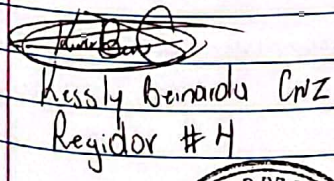 Kessly Beinardu Cruz
Regidor # 4